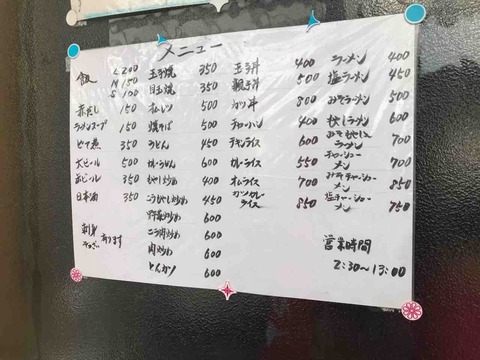 メニュー
飯 L 200
M 150
S 100
赤だし 150
ラーメンスープ 150
ピザ煮 350
大ビール 500
缶ビール 350
日本酒 350
刺身
あります
玉子焼 350
目玉焼 350
オムレツ 500
焼そば 500
うどん 450
カレーうどん 600
もやし炒め 400
こうもやし炒め 450
野菜炒め 600
ニラ肉炒め 600
肉炒め 600
とんカツ 600
玉子丼 400
親子丼 500
カツ丼 800
チャーハン 400
チキンライス 600
カレーライス 550
オムライス 700
カツカレーライス 850
ラーメン 400
塩ラーメン 450
みそラーメン 500
もやしラーメン 600
みそもやしラーメン 700
チャーシューメン 700
みそチャーシューメン 850
塩チャーシューメン 750
営業時間
2:30~13:00